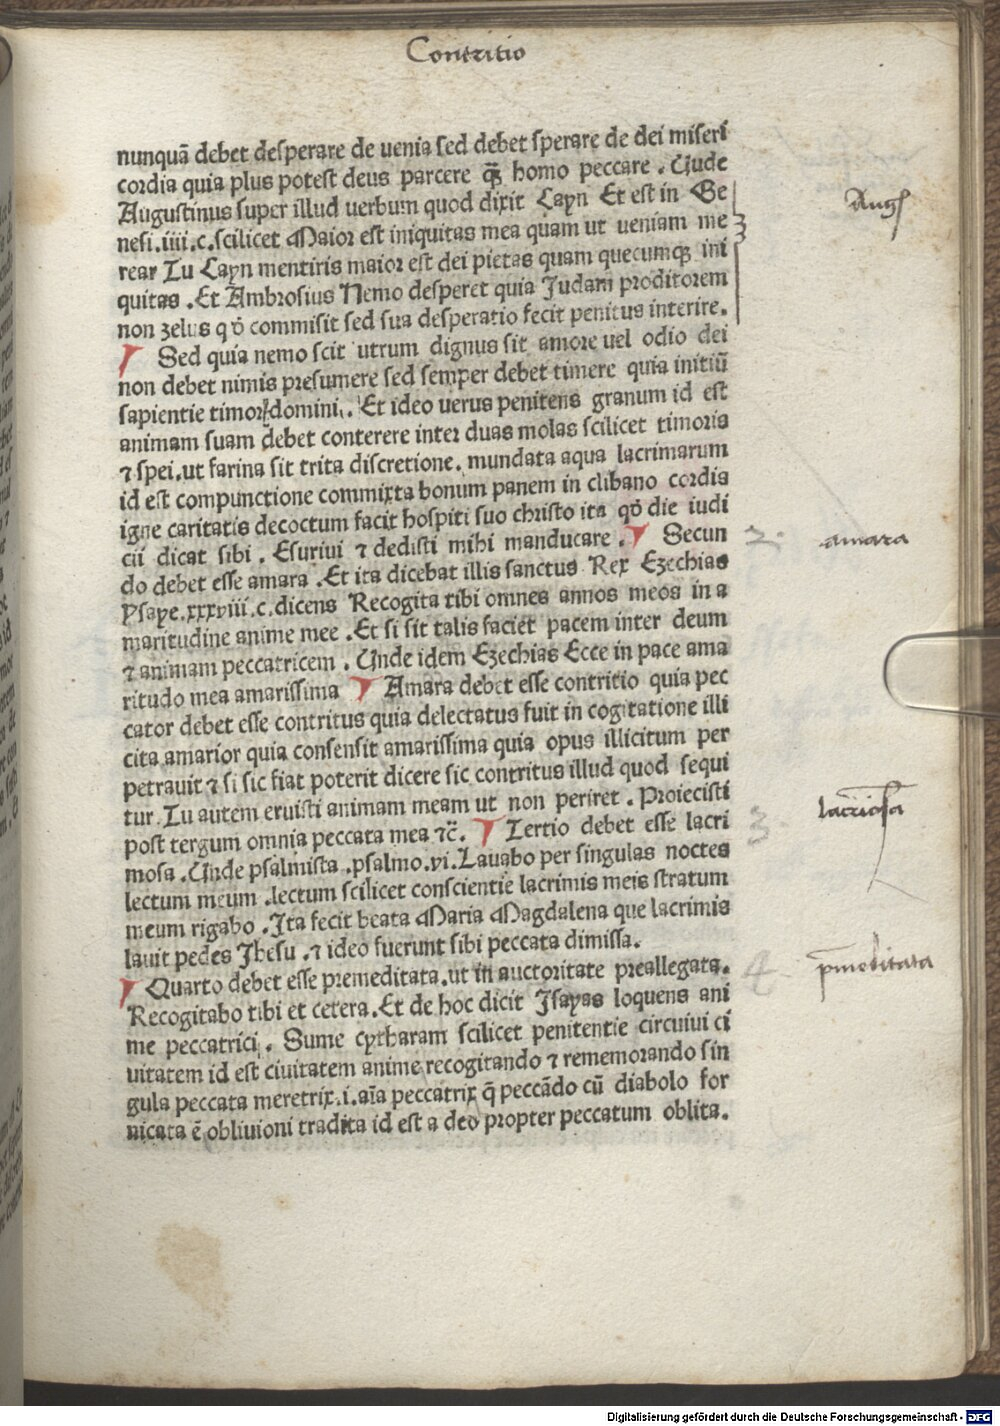 Contritio
nunquā debet desperare de uenia sed debet sperare de dei miseri
cordia quia plus potest deus parcere q̄ꝫ homo peccare . Unde
Augustinus super illud uerbum quod dixit Cayn Et est in Ge
nesi .iiii .c. scilicet Maior est iniquitas mea quam ut ueniam me
rear Tu Cayn mentiris maior est dei pietas quam quecumqꝫ ini
quitas . Et Ambrosius Nemo desperet quia Judam proditorem
non zelus q ō commisit sed sua desperatio fecit penitus interire .
Sed quia nemo scit utrum dignus sit amore uel odio dei
non debet nimis presumere sed semper debet timere quia initiū
sapientie timor domini . Et ideo uerus penitens granum id est
animam suam debet conterere inter duas molas scilicet timoris
⁊ spei . ut farina sit trita discretione . mundata aqua lacrimarum
id est compunctione commixta bonum panem in clibano cordis
igne caritatis decoctum facit hospiti suo christo ita qō die iudi
cii dicat sibi . Esurivi ⁊ dedisti mihi manducare . Secun
do debet esse amara . Et ita dicebat illis sanctus Rex Ezechias
Ysaye .xxxviii .c. dicens Recogita tibi omnes annos meos in a
maritudine anime mee . Et si sit talis faciet pacem inter deum
⁊ animam peccatricem . Unde idem Ezechias Ecce in pace ama
ritudo mea amarissima Amara debet esse contritio quia pec
cator debet esse contritus quia delectatus fuit in cogitatione illi
cita amarior quia consensit amarissima quia opus illicitum per
petrauit ⁊ si sic fiat poterit dicere sic contritus illud quod sequi
tur . Tu autem eruisti animam meam ut non periret . Proiecisti
post tergum omnia peccata mea ⁊c̄ . Tertio debet esse lacri
mosa . Unde psalmista . psalmo .vi . Lauabo per singulas noctes
lectum meum . lectum scilicet conscientie lacrimis meis stratum
meum rigabo . Ita fecit beata Maria Magdalena que lacrimis
lauit pedes Jhesu . ⁊ ideo fuerunt sibi peccata dimissa .
Quarto debet esse premeditata . ut in auctoritate preallegata .
Recogitabo tibi et cetera . Et de hoc dicit Isayas loquens ani
me peccatrici . Sume cytharam scilicet penitentie circuiui ci
uitatem id est ciuitatem anime recogitando ⁊ rememorando sin
gula peccata meretrix .i. aīa peccatrix q̄ peccādo cū diabolo for
nicata ē obliuioni tradita id est a deo propter peccatum oblita .
Augꝰ
2. amara
3. lacriosa
4. p̄meditata
Digitalisierung gefördert durch die Deutsche Forschungsgemeinschaft - DFG